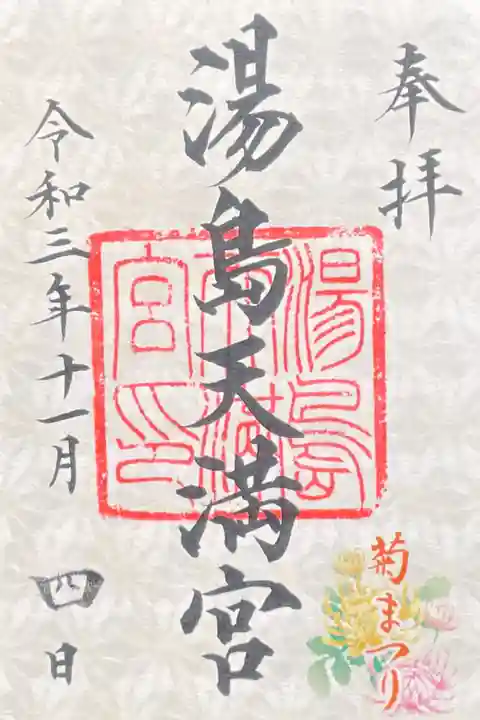 奉拝
湯島天満宮
湯島
天満
宮印
令和三年十一月四日
菊まつり